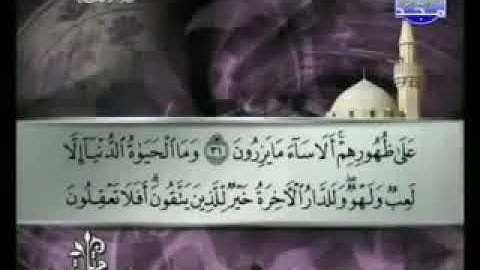 مجد
عَلَىٰ ظُهُورِهِمْ ۚ أَلَا سَآءَ مَا يَزِرُونَ ٣١ وَمَا الْحَيَوٰةُ الدُّنْيَآ إِلَّا
لَعِبٌ وَلَهْوٌ ۖ وَلَلدَّارُ الْآخِرَةُ خَيْرٌ لِّلَّذِينَ يَتَّقُونَ ۗ أَفَلَا تَعْقِلُونَ